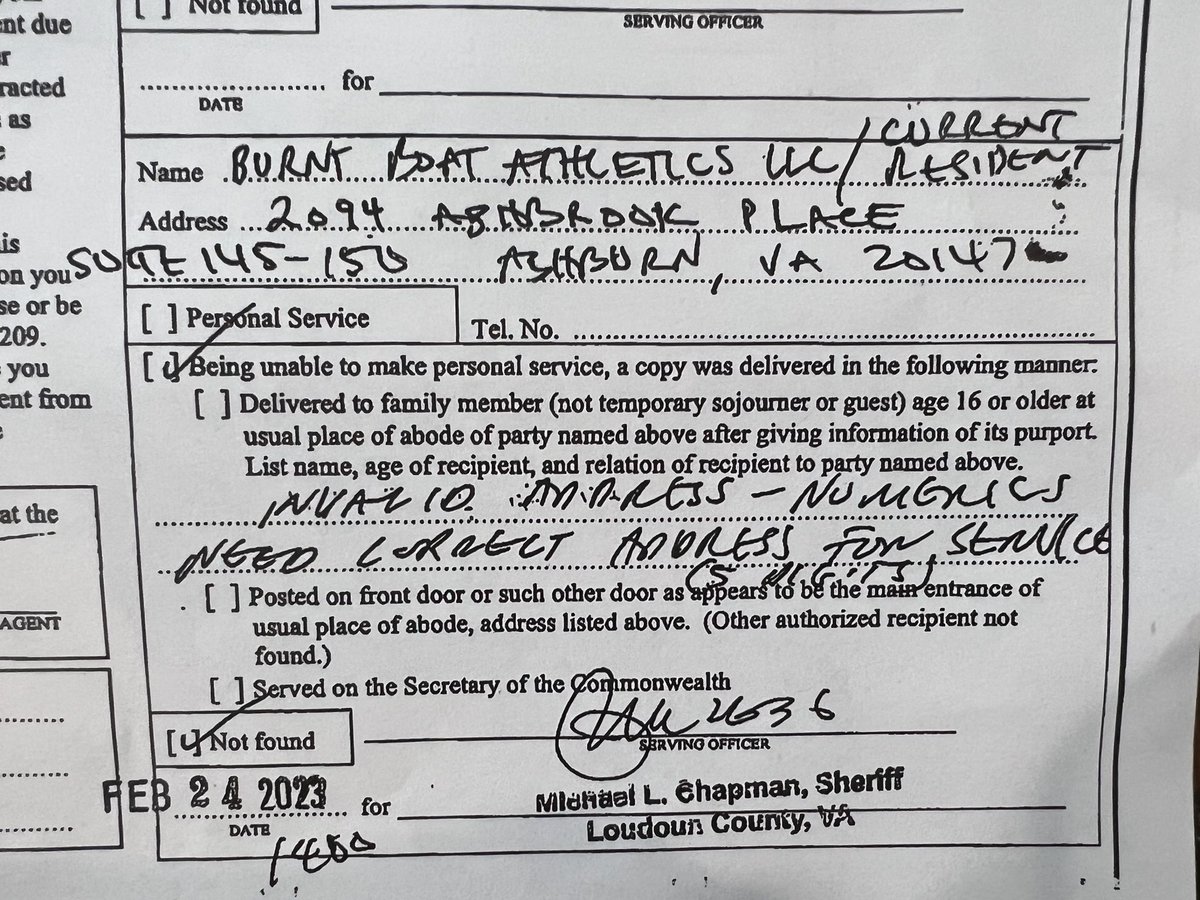 ent due
r
racted
as
e
sed
is
on you
se or be
209.
you
ent from
e
at the
AGENT
[ ] Not found
SERVING OFFICER
for
DATE
/CURRENT
Name BURNT BOAT ATHLETICS LLC/ RESIDENT
Address 2094 ASHBROOK PLACE
SUITE 145-150 ASHBURN, VA 20147
[ ] Personal Service Tel. No.
[✓] Being unable to make personal service, a copy was delivered in the following manner:
[ ] Delivered to family member (not temporary sojourner or guest) age 16 or older at
usual place of abode of party named above after giving information of its purport.
List name, age of recipient, and relation of recipient to party named above.
INVALID ADDRESS - NUMERICS
NEED CORRECT ADDRESS FOR SERVICE
(5 DIGITS)
[ ] Posted on front door or such other door as appears to be the main entrance of
usual place of abode, address listed above. (Other authorized recipient not
found.)
[ ] Served on the Secretary of the Commonwealth
2636
[✓] Not found
SERVING OFFICER
FEB 24 2023 for Michael L. Chapman, Sheriff
DATE Loudoun County, VA